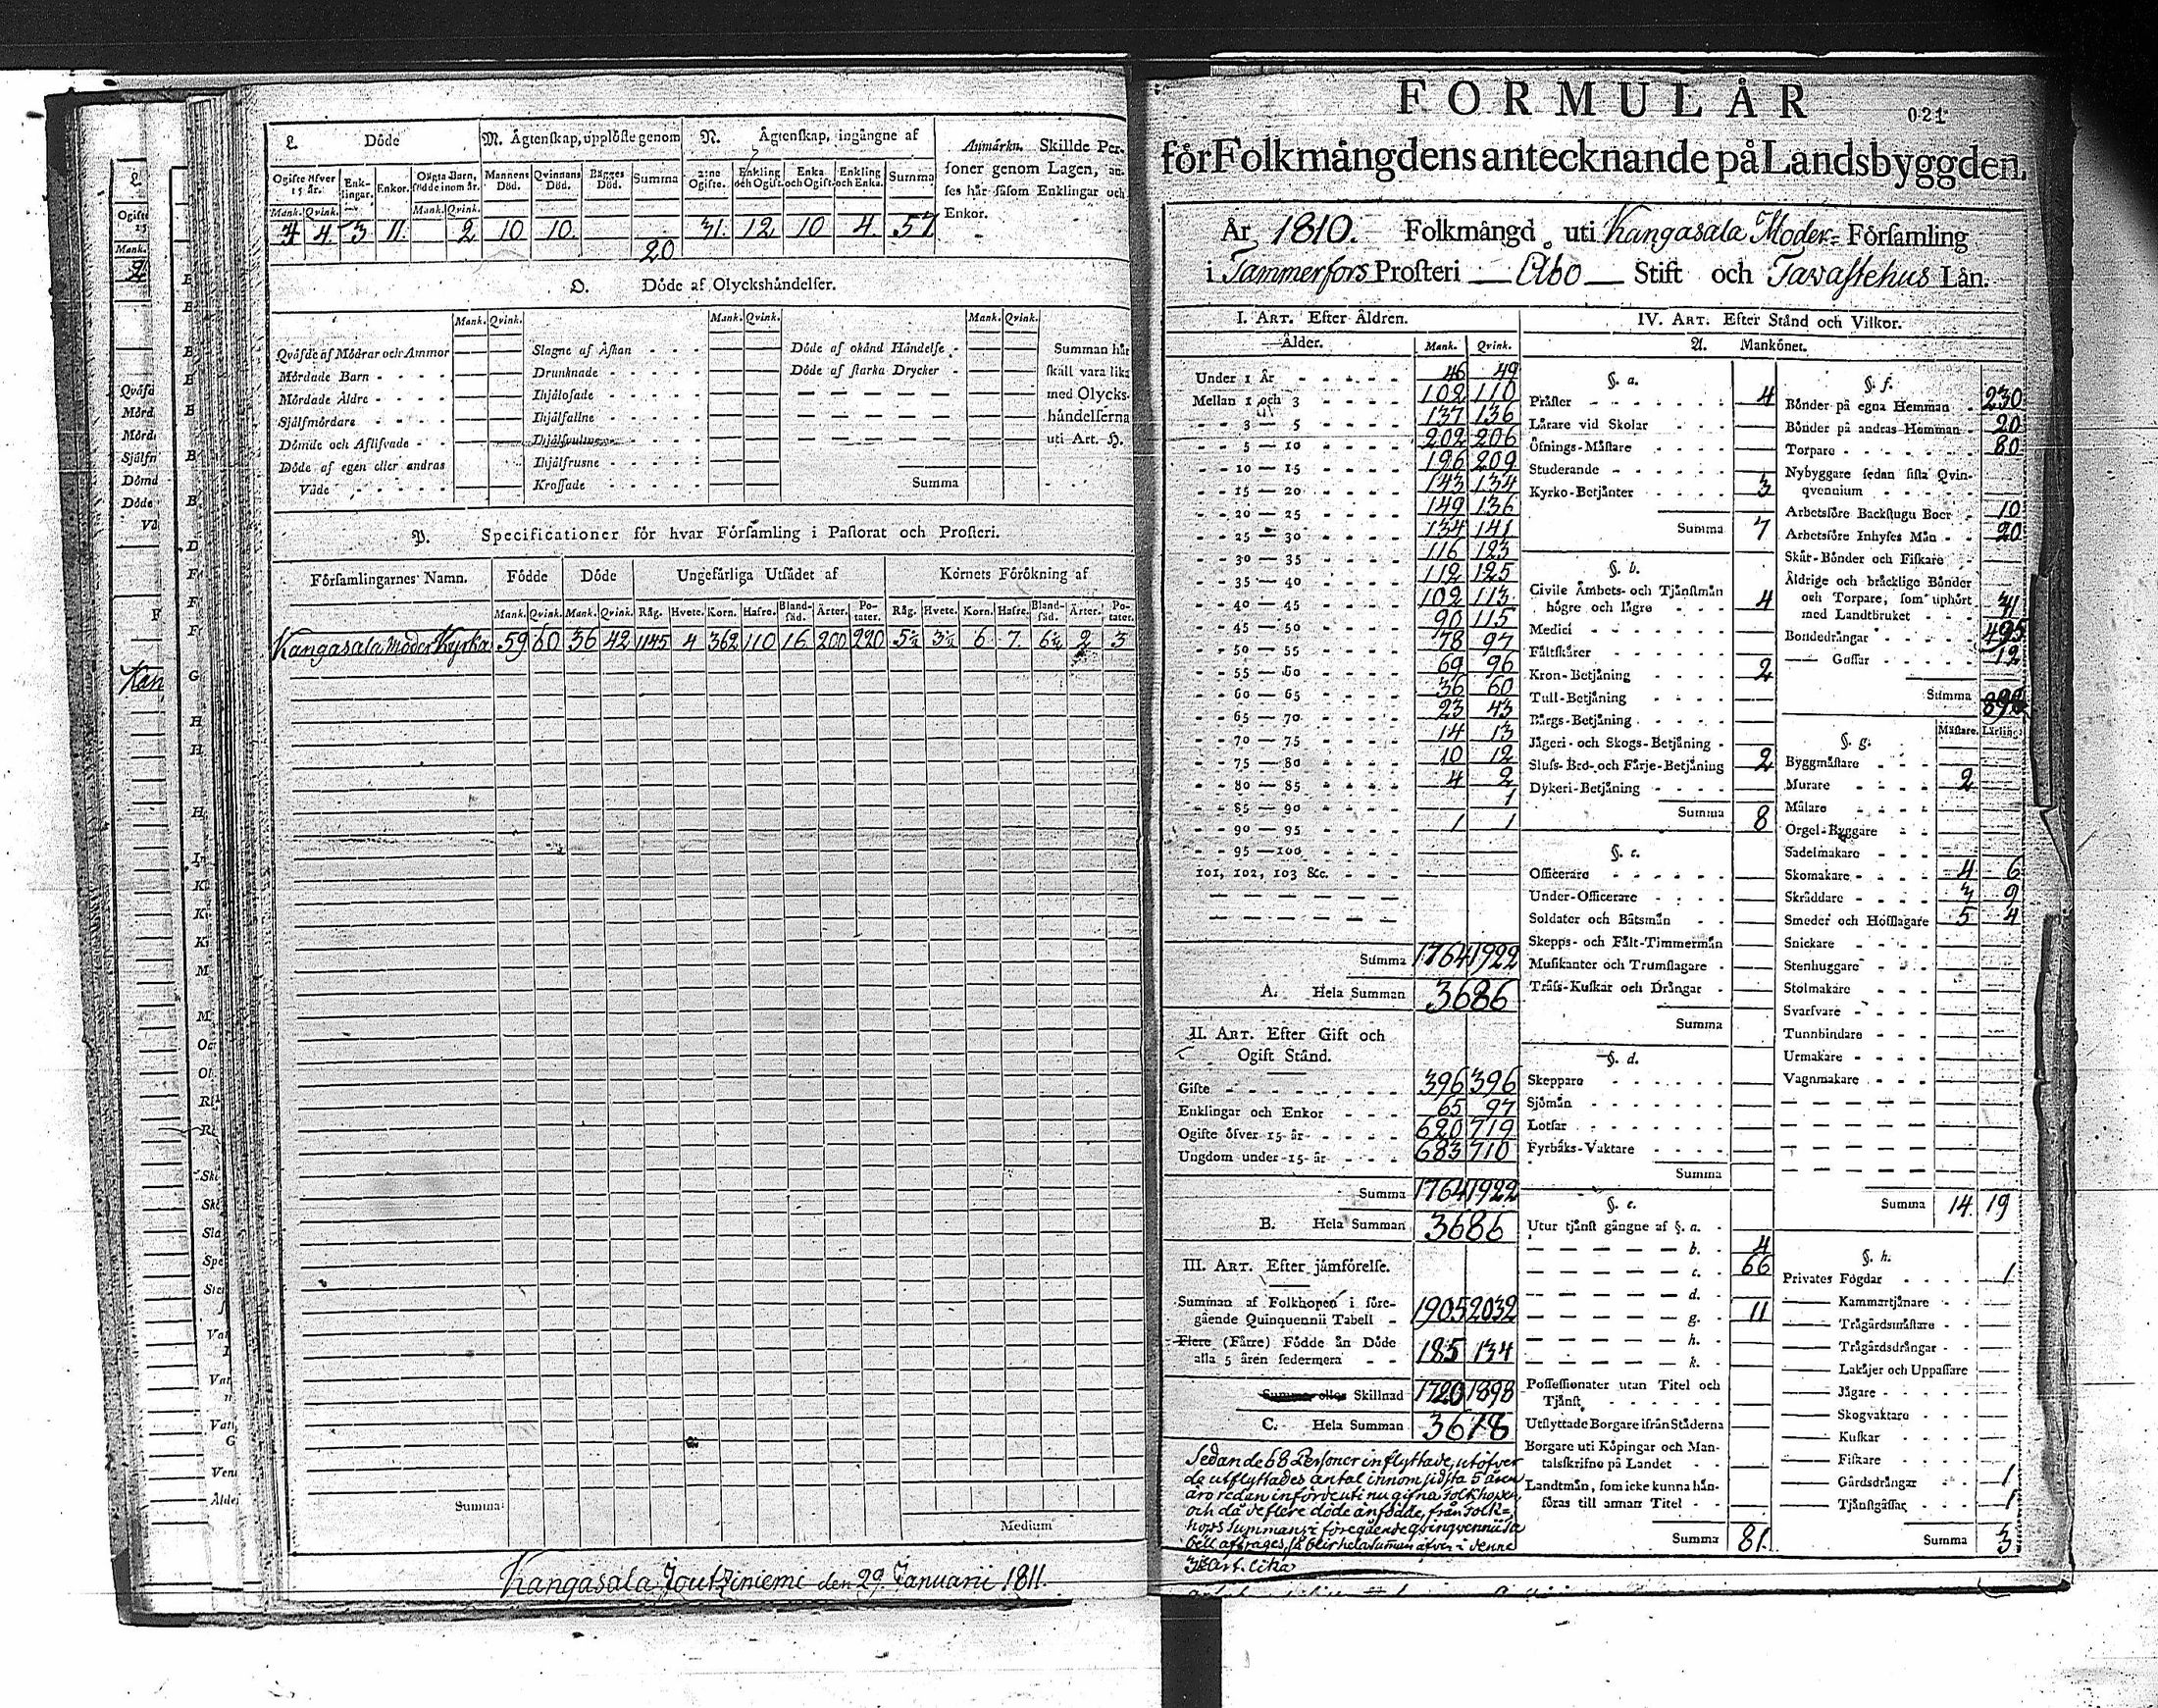 L. Döde
Ogifte öfver 15 år. Enklingar. Enkor. Oägta Barn, födde inom år.
Mank. Qvink. Mank. Qvink.
4 4 3 11. 2
M. Ägtenskap, upplöste genom
Mannens Död. Qvinnans Död. Bägges Död. Summa
10 10. 20
N. Ägtenskap, ingångne af
2:ne Ogifte. Enkling och Ogift. Enka och Ogift. Enkling och Enka. Summa
31. 12 10 4. 57
Anmärkn. Skillde Per-
soner genom Lagen, an-
ses här såsom Enklingar och
Enkor.
O. Döde af Olyckshändelser.
Mank. Qvink. Mank. Qvink. Mank. Qvink.
Qväfde af Mödrar och Ammor
Mördade Barn
Mördade Äldre
Själfmördare
Dömde och Aflifvade
Döde af egen eller andras
Våde
Slagne af Åskan
Drunknade
Ihjälosade
Ihjälfallne
Ihjälfrusne
Krossade
Döde af okänd Händelse
Döde af starka Drycker
Summa
Summan här
skall vara lika
med Olycks-
händelserna
uti Art. H.
P. Specificationer för hvar Församling i Pastorat och Prosteri.
Församlingarnes Namn. Födde Döde Ungefärliga Utsädet af Kornets Förökning af
Mank. Qvink. Mank. Qvink. Råg. Hvete. Korn. Hafre. Blandsäd. Ärter. Potater. Råg. Hvete. Korn. Hafre. Blandsäd. Ärter. Potater.
Kangasala Moder Kyrka 59 60 36 42 1145 4 362 110 16 200 220 5½ 3½ 6 7. 6½ 2 3
Summa
Medium
Kangasala Joutziniemi den 29. Januarii 1811.
FORMULÄR
021
för Folkmängdens antecknande på Landsbyggden.
År 1810. Folkmängd uti Kangasala Moder- Församling
i Tammerfors Prosteri Åbo Stift och Tavastehus Län.
I. ART. Efter Åldren.
Ålder. Mank. Qvink.
Under 1 År 46 49
Mellan 1 och 3 102 110
3 — 5 137 136
5 — 10 202 206
10 — 15 196 209
15 — 20 143 134
20 — 25 149 136
25 — 30 134 141
30 — 35 116 123
35 — 40 112 125
40 — 45 102 113
45 — 50 90 115
50 — 55 78 97
55 — 60 69 96
60 — 65 36 60
65 — 70 23 43
70 — 75 14 13
75 — 80 10 12
80 — 85 4 2
85 — 90 1
90 — 95 1 1
95 — 100
101, 102, 103 &c.
Summa 1764 1922
A. Hela Summan 3686
II. ART. Efter Gift och
Ogift Stånd.
Gifte 396 396
Enklingar och Enkor 65 97
Ogifte öfver 15 år 620 719
Ungdom under 15 år 683 710
Summa 1764 1922
B. Hela Summan 3686
III. ART. Efter jämförelse.
Summan af Folkhopen i före-
gående Quinquennii Tabell 1905 2032
Flere (Färre) Födde än Döde
alla 5 åren sedermera 185 134
Skillnad 1720 1898
C. Hela Summan 3618
Sedan de 68 Personer inflyttade, utöfver
de utflyttades antal innom sidsta 5 åren
äro redan införde uti nu gifna Folkhopen,
och då de flere döde än födde, från Folk=
hops summan i föregående qvinqvennii Ta
bell aftrages, så blir hela summan äfven i denne
3:die Art. lika
IV. ART. Efter Stånd och Vilkor.
A. Mankönet.
§. a.
Präster 4
Lärare vid Skolar
Öfnings-Mästare
Studerande
Kyrko-Betjänter 3
Summa 7
§. b.
Civile Ämbets- och Tjänstmän
högre och lägre 4
Medici
Fältskärer
Kron-Betjäning 2
Tull-Betjäning
Bärgs-Betjäning
Jägeri- och Skogs-Betjäning
Sluss- Bro- och Färje-Betjäning 2
Dykeri-Betjäning
Summa 8
§. c.
Officerare
Under-Officerare
Soldater och Båtsmän
Skepps- och Fält-Timmermän
Musikanter och Trumslagare
Träss-Kuskar och Drängar
Summa
§. d.
Skeppare
Sjömän
Lotsar
Fyrbåks-Vaktare
Summa
§. e.
Utur tjänst gångne af §. a.
b. 4
c. 66
d.
g. 11
h.
k.
Possessionater utan Titel och
Tjänst
Utflyttade Borgare ifrån Städerna
Borgare uti Köpingar och Man-
talsskrifne på Landet
Landtmän, som icke kunna hän-
föras till annan Titel
Summa 81.
§. f.
Bönder på egna Hemman 230
Bönder på andras Hemman 20
Torpare 80
Nybyggare sedan sista Qvin-
qvennium
Arbetsföre Backstugu Boer 10
Arbetsföre Inhyses Män 20
Skär-Bönder och Fiskare
Äldrige och bräcklige Bönder
och Torpare, som uphört
med Landtbruket 31
Bondedrängar 495
Gossar 12
Summa 898
§. g. Mästare. Lärling.
Byggmästare
Murare 2
Målare
Orgel-Byggare
Sadelmakare
Skomakare 4 6
Skräddare 3 9
Smeder och Hofslagare 5 4
Snickare
Stenhuggare
Stolmakare
Svarfvare
Tunnbindare
Urmakare
Vagnmakare
Summa 14. 19
§. h.
Privates Fogdar 1
Kammartjänare
Trägårdsmästare
Trägårdsdrängar
Lakäjer och Uppassare
Jägare
Skogvaktare
Kuskar
Fiskare
Gårdsdrängar 1
Tjänstgåssar 1
Summa 3